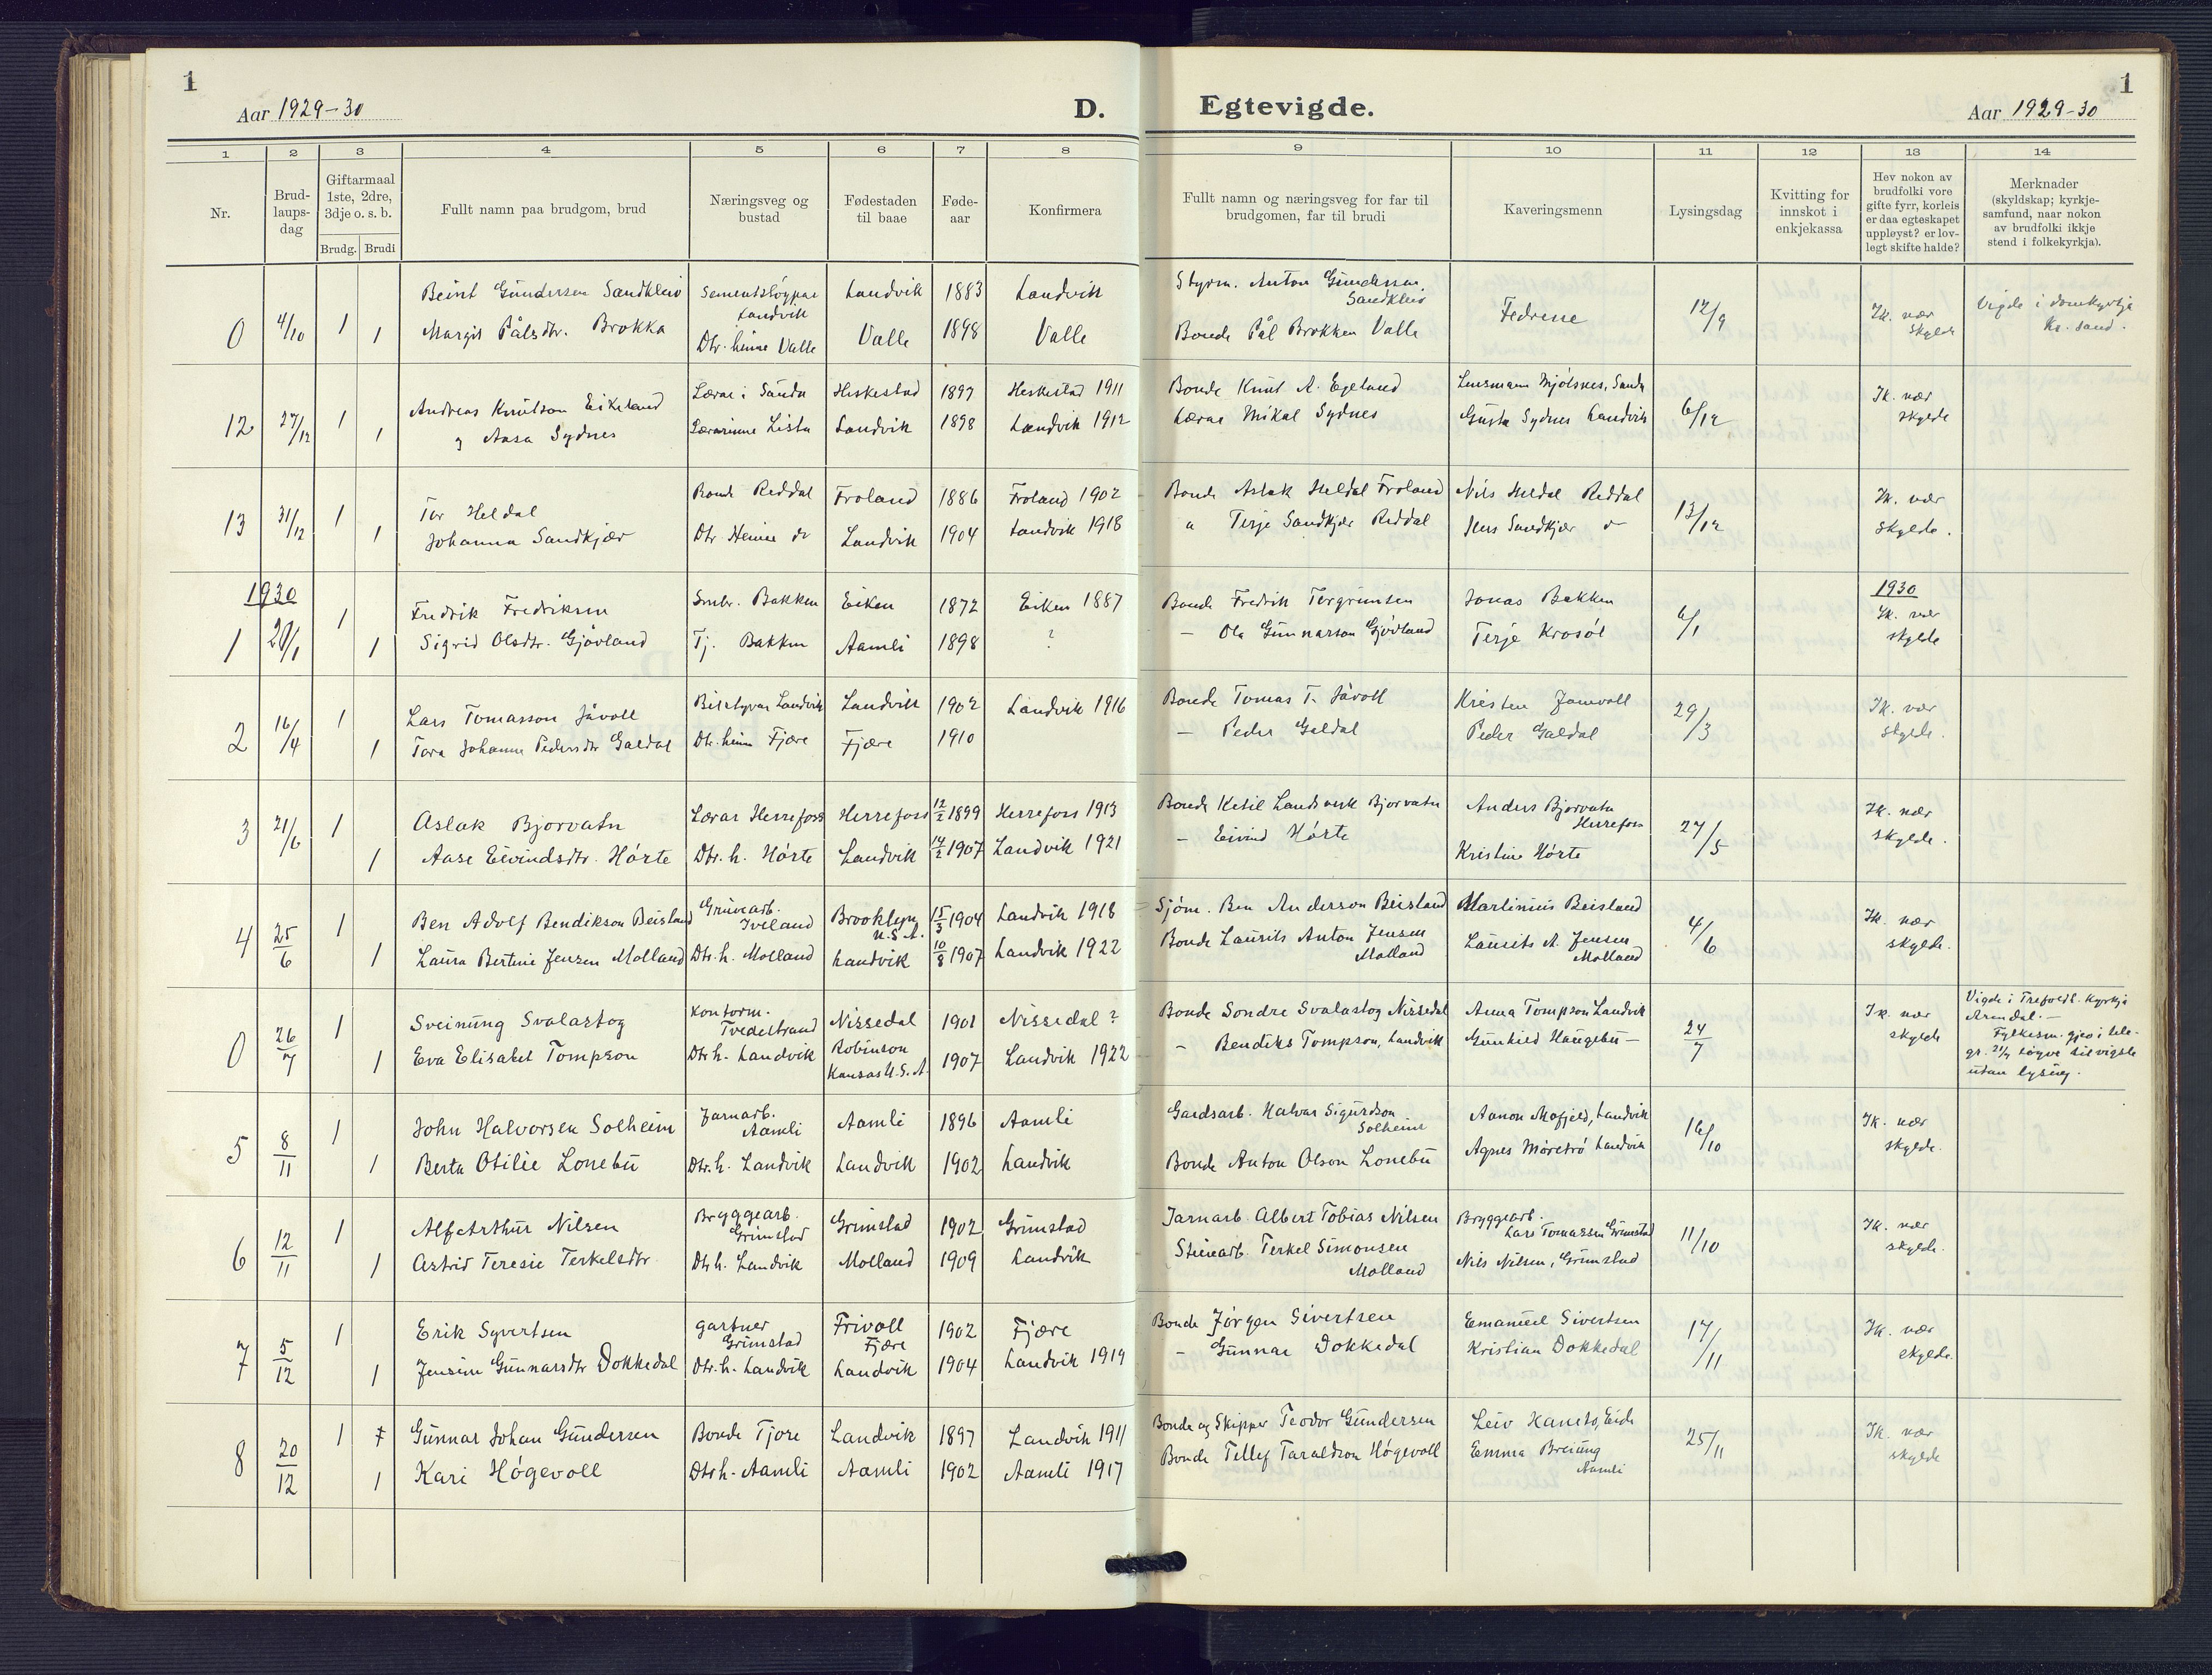 1
Aar 1929-30
D.
Egtevigde.
Aar 1929-30
1
1 2 3 4 5 6 7 8 9 10 11 12 13 14
Nr.
Brud-
laups-
dag
Giftarmaal
1ste, 2dre,
3dje o. s. b.
Brudg. Brudi
Fullt namn paa brudgom, brud
Næringsveg og
bustad
Fødestaden
til baae
Føde-
aar
Konfirmera
Fullt namn og næringsveg for far til
brudgomen, far til brudi
Kaveringsmenn
Lysingsdag
Kvitting for
innskot i
enkjekassa
Hev nokon av
brudfolki vore
gifte fyrr, korleis
er daa egteskapet
uppløyst? er lov-
legt skifte halde?
Merknader
(skyldskap; kyrkje-
samfund, naar nokon
av brudfolki ikkje
stend i folkekyrkja).
0 4/10 1 1
Beint Gundersen Sandkleiv
Margit Pålsdtr. Brokka
Sementstøypar
Landvik
Dtr. heime Valle
Landvik 1883 Landvik
Valle 1898 Valle
Styrm. Anton Gundersen
Sandkleiv
Bonde Pål Brokken Valle
Fedrene
12/9
Ik. nær
skylde
Vigde i domkyrkja
Kr. sand.
12 27/12 1 1
Andreas Knutson Eikeland
og Aasa Sydnes
Lærar i Sandn Heskestad 1897 Heskestad 1911
Lærarinne Lista Landvik 1898 Landvik 1912
Bonde Knut A. Egeland
Lærar Mikal Sydnes
Lensmann Mjølsnes, Sandn
Gusta Sydnes Landvik
6/12
Ik. nær
skylde
13 31/12 1 1
Tor Heldal
Johanna Sandkjær
Bonde Reddal Froland 1886 Froland 1902
Dtr. Heime do Landvik 1904 Landvik 1918
Bonde Aslak Heldal Froland
" Terje Sandkjær Reddal
Nils Heldal Reddal
Jens Sandkjær do
13/12
Ik. nær
skylde.
1930
1 20/1 1 1
Fredrik Fredriksen
Sigrid Olsdtr. Gjøvland
Smbr. Bakken Eiken 1872 Eiken 1887
Tj. Bakken Aamli 1898 ?
Bonde Fredrik Tergrimsen
- Ola Gunnarson Gjøvland
Jonas Bakken
Terje Krosøl
6/1
1930
Ik. nær
skylde
2 16/4 1 1
Lars Tomasson Jåvoll
Tora Johanne Pedersdtr Galdal
Bilstyrar Landvik Landvik 1902 Landvik 1916
Dtr. heim Fjære Fjære 1910
Bonde Tomas T. Jåvoll
- Peder Galdal
Kristen Jomvoll
Peder Galdal
29/3
Ik. nær
skylde.
3 21/6 1 1
Aslak Bjorvatn
Aase Eivindsdtr. Hørte
Lærar Herrefoss Herrefoss 12/2 1899 Herrefoss 1913
Dtr. h. Hørte Landvik 14/2 1907 Landvik 1921
Bonde Ketil Landsverk Bjorvatn
- Eivind Hørte
Anders Bjorvatn
Herrefoss
Kristine Hørte
27/5
Ik. nær
skylde.
4 25/6 1 1
Ben Adolf Bendikson Beisland
Laura Bertine Jensen Molland
Gruvearb.
Iveland
Dtr. h. Molland
Brooklyn
U.S.A.
Landvik
15/3 1904 Landvik 1918
10/8 1907 Landvik 1922
Sjøm. Ben Anderson Beisland
Bonde Laurits Anton Jensen
Molland
Martinius Beisland
Laurits A. Jensen
Molland
4/6
Ik. nær
skylde.
0 26/7 1 1
Sveinung Svalastog
Eva Elisabet Tompson
Kontorm.
Tvedestrand
Dtr h. Landvik
Nissedal 1901 Nissedal ?
Robinson
Kansas U.S.A. 1907 Landvik 1922
Bonde Sondre Svalastog Nissedal
- Bendiks Tompson, Landvik
Anna Tompson Landvik
Gunhild Haugebu -
24/7
Ik. nær
skylde
Vigde i Trefoldh. kyrkja
Arendal. -
Fylkesm. gjev i tele-
gr. 21/7 løyve til vigsle
utan lysing.
5 8/11 1 1
John Halvorsen Solheim
Berta Otilie Lonebu
Jarnarb.
Aamli
Dtr. h. Landvik
Aamli 1896 Aamli
Landvik 1902 Landvik
Gardsarb. Halvar Sigurdson
Solheim
Bonde Anton Olson Lonebu
Aanon Mofjeld, Landvik
Agnes Moretrø Landvik
16/10
Ik. nær
skylde.
6 12/11 1 1
Alf Arthur Nilsen
Astrid Teresie Terkelsdtr.
Bryggearb.
Grimstad
Dtr h. Landvik
Grimstad 1902 Grimstad
Molland 1909 Landvik
Jarnarb. Albert Tobias Nilsen
Steinarb. Terkel Simonsen
Molland
Bryggearb.
Lars Tomassen Grimstad
Nils Nilsen, Grimstad
11/10
Ik. nær
skylde.
7 5/12 1 1
Erik Syvertsen
Jensine Gunnarsdtr Dokkedal
gartner
Grimstad
Dtr. h. Landvik
Frivoll
Fjære 1902 Fjære
Landvik 1904 Landvik 1919
Bonde Jørgen Sivertsen
- Gunnar Dokkedal
Emanuel Sivertsen
Kristian Dokkedal
17/11
Ik. nær
skylde.
8 20/12 1 1
Gunnar Johan Gundersen
Kari Høgevoll
Bonde Tjore Landvik 1897 Landvik 1911
Dtr h. Aamli Aamli 1902 Aamli 1917
Bonde og Skipper Teodor Gundersen
Bonde Tellef Taraldson Høgevoll
Leiv Hanstø, Eide
Emma Breiung
Aamli
25/11
Ik. nær
skylde